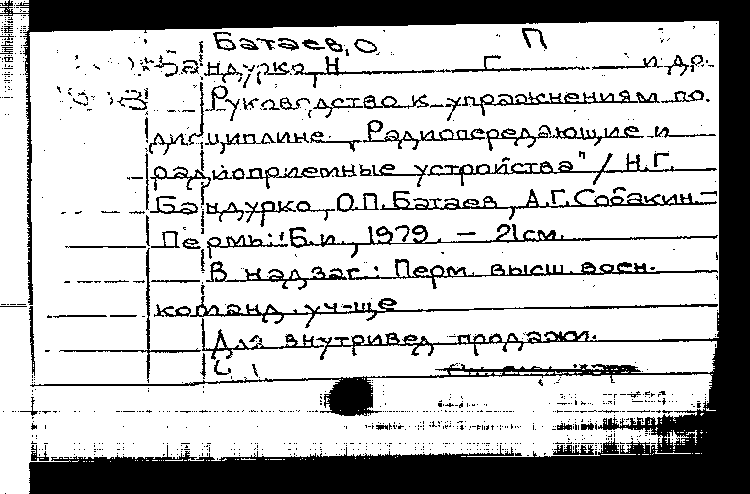 Батаев, О П
Бандурко, Н Г и др.
Руководство к упражнениям по
дисциплине „Радиопередающие и
радиоприемные устройства" / Н.Г.
Бандурко, О.П. Батаев, А.Г. Собакин. –
Пермь: Б.и., 1979. – 21 см.
В надзаг.: Перм. высш. воен.
команд. уч-ще
Для внутривед продажи.